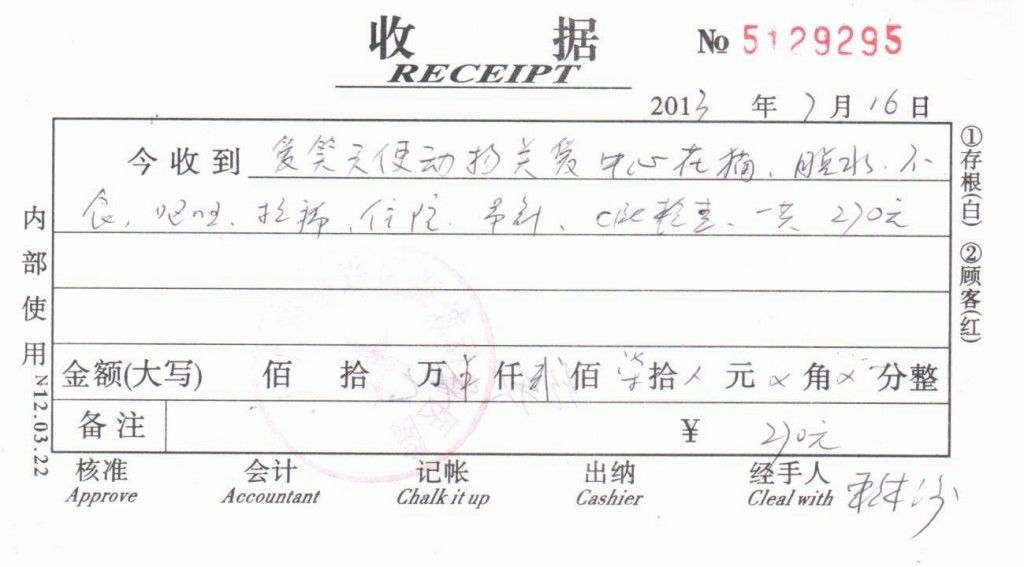 收 据
RECEIPT
№ 5129295
2013 年 7 月 16 日
今收到 爱笑天使动物关爱中心花猫、脱水、不
食、呕吐、拉稀、住院、吊针、检查、一共 270元
金额(大写) 佰 拾 万 仟 贰 佰 柒 拾 × 元 × 角 × 分整
备注 ¥ 270元
核准 会计 记帐 出纳 经手人
Approve Accountant Chalk it up Cashier Cleal with
内部使用 N12.03.22
①存根(白) ②顾客(红)